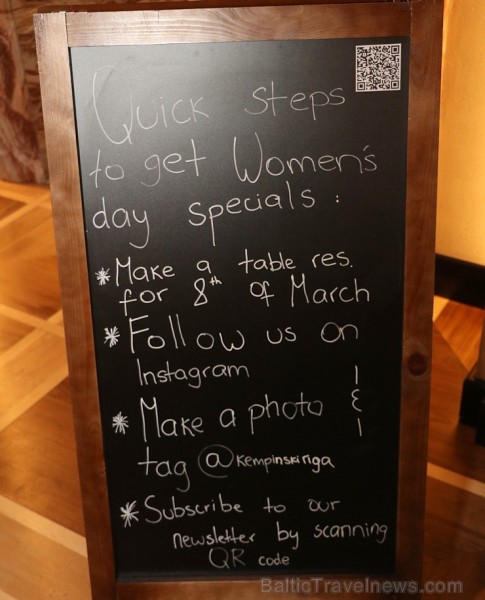 Quick Steps
to get Women's
day specials:
* Make a table res.
for 8th of March
* Follow us on
Instagram
* Make a photo &
tag @kempinskiriga
* Subscribe to our
newsletter by scanning
QR code
BalticTravelnews.com